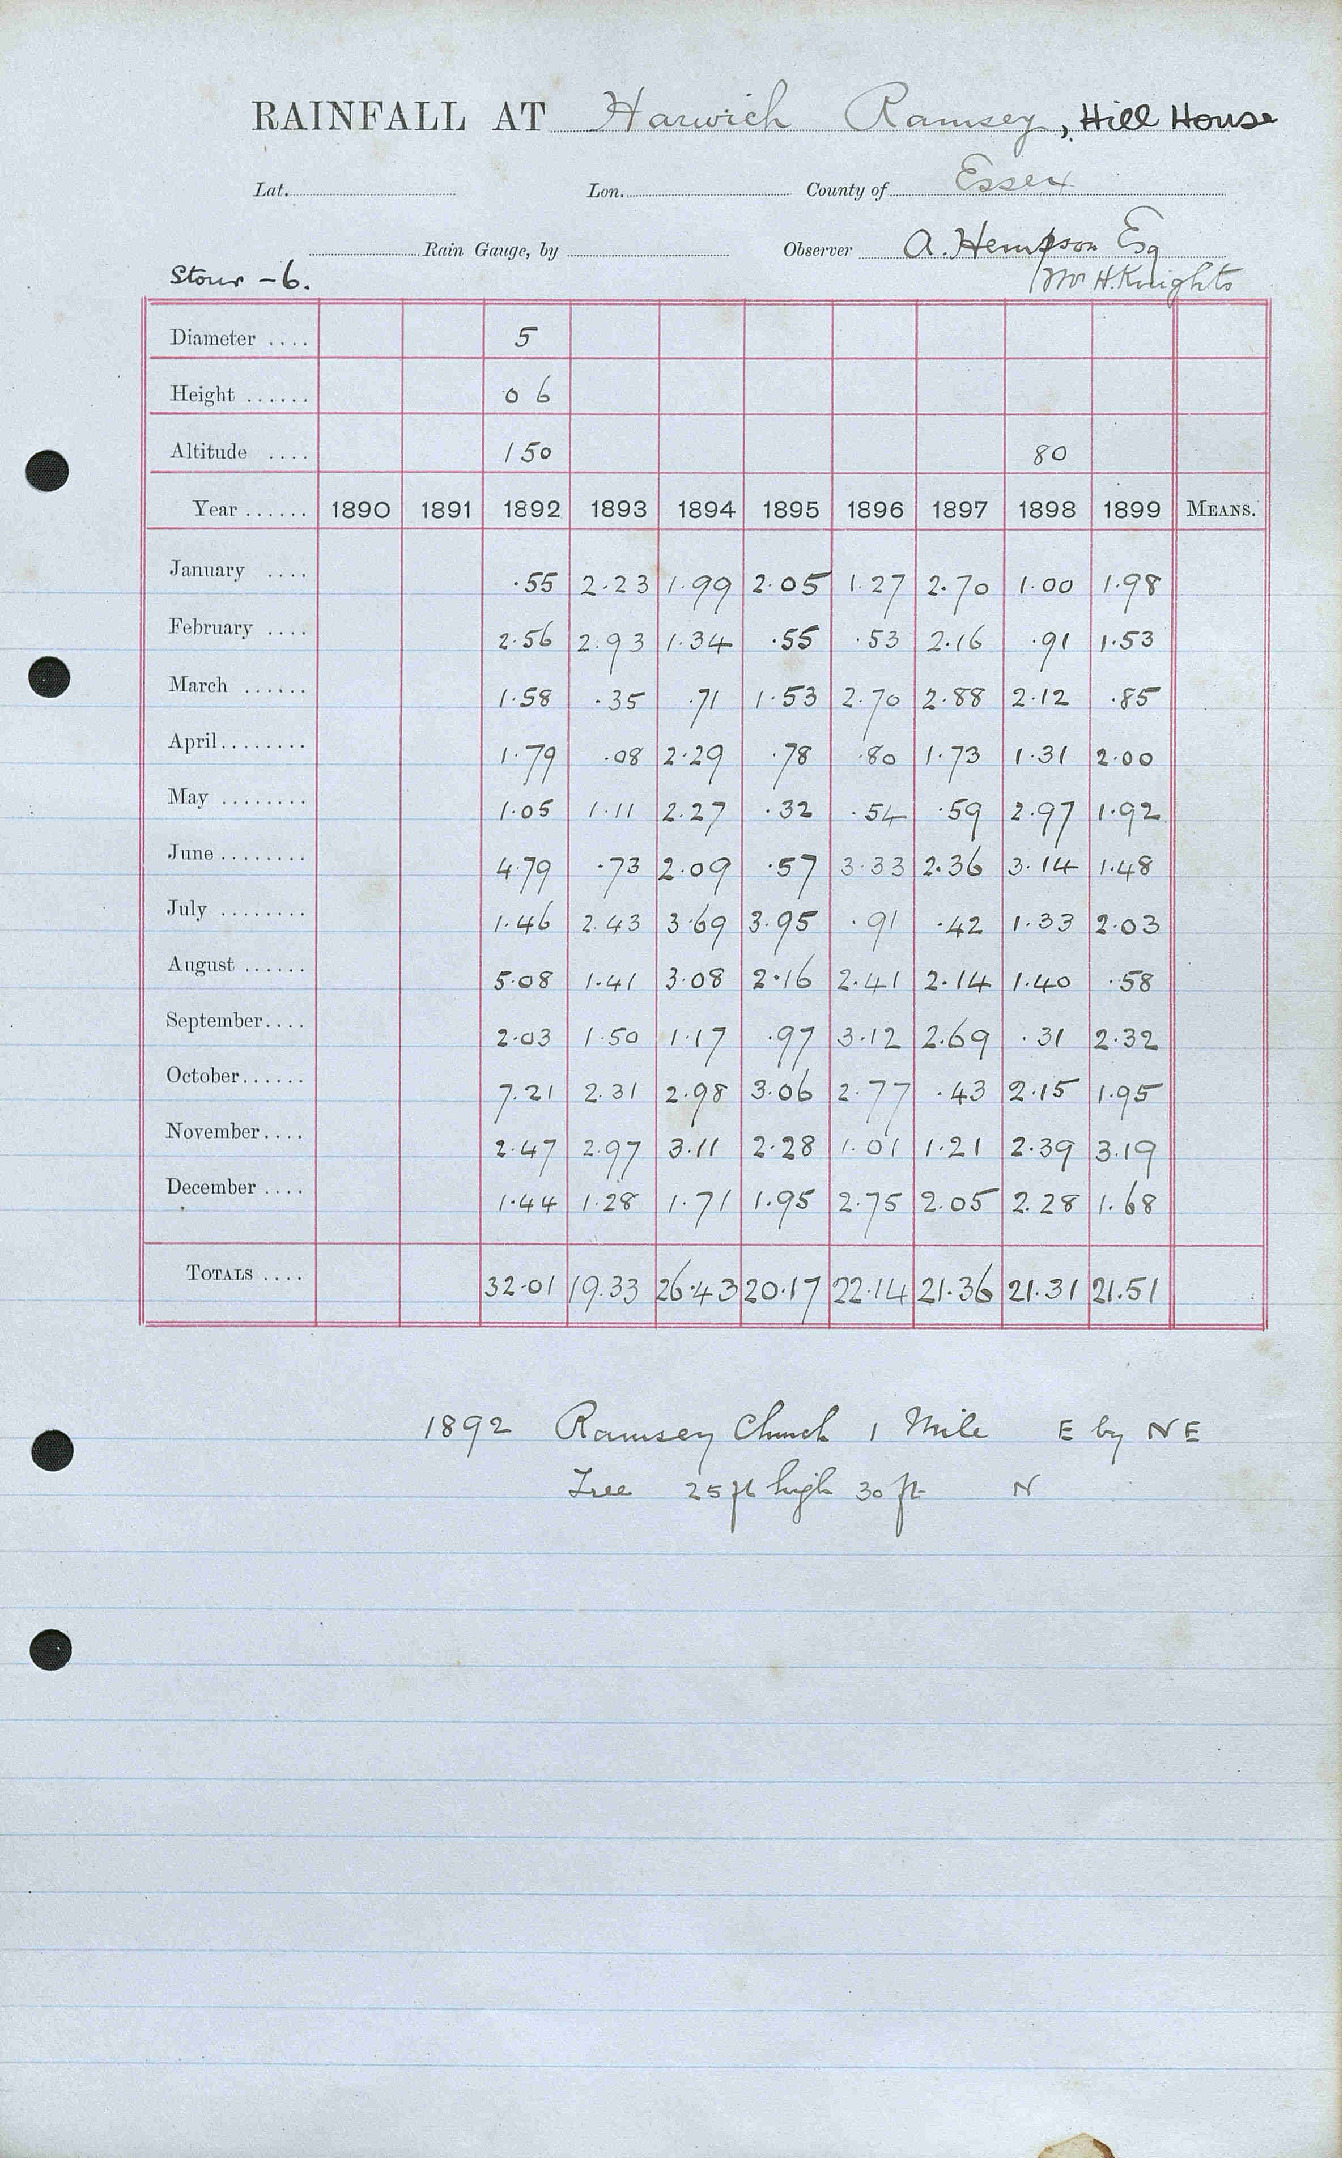 RAINFALL AT Harwich Ramsey, Hill House
Lat. Lon. County of Essex
Rain Gauge, by Observer A. Hempson Esq
Stour - 6. Mr H. Knights
Diameter .... 5
Height ...... 0 6
Altitude .... 150 80
Year ...... 1890 1891 1892 1893 1894 1895 1896 1897 1898 1899 MEANS.
January .... .55 2.23 1.99 2.05 1.27 2.70 1.00 1.98
February .... 2.56 2.93 1.34 .55 .53 2.16 .91 1.53
March ...... 1.58 .35 .71 1.53 2.70 2.88 2.12 .85
April........ 1.79 .08 2.29 .78 .80 1.73 1.31 2.00
May ........ 1.05 1.11 2.27 .32 .54 .59 2.97 1.92
June ........ 4.79 .73 2.09 .57 3.33 2.36 3.14 1.48
July ........ 1.46 2.43 3.69 3.95 .91 .42 1.33 2.03
August ...... 5.08 1.41 3.08 2.16 2.41 2.14 1.40 .58
September.... 2.03 1.50 1.17 .97 3.12 2.69 .31 2.32
October...... 7.21 2.31 2.98 3.06 2.77 .43 2.15 1.95
November.... 2.47 2.97 3.11 2.28 1.01 1.21 2.39 3.19
December .... 1.44 1.28 1.71 1.95 2.75 2.05 2.28 1.68
TOTALS .... 32.01 19.33 26.43 20.17 22.14 21.36 21.31 21.51
1892 Ramsey Church 1 Mile E by NE
Tree 25 ft high 30 ft N